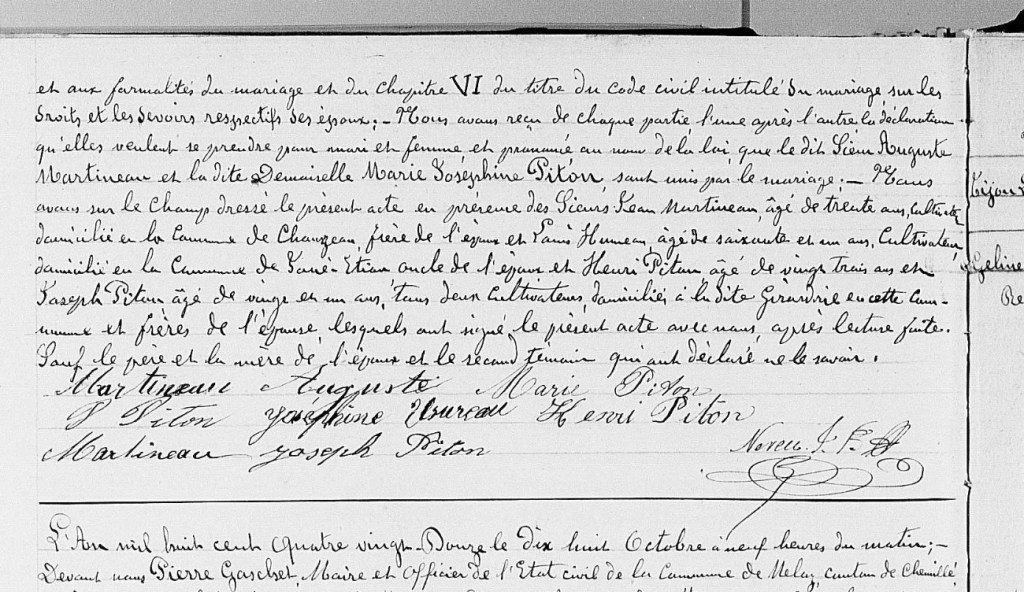 et aux formalités du mariage et du Chapitre VI du titre du code civil intitulé du mariage sur les
droits et les devoirs respectifs des époux; — Nous avons reçu de chaque partie l'une après l'autre la déclaration
qu'elles veulent se prendre pour mari et femme et prononcé au nom de la loi, que le dit Sieur Auguste
Martineau et la dite Demoiselle Marie Joséphine Piton, sont unis par le mariage; — Nous
avons sur le Champ dressé le présent acte en présence des Sieurs Jean Martineau, âgé de trente ans, Cultivateur
domicilié en la Commune de Chanzeau, frère de l'époux et Louis Humeau, âgé de soixante et un ans, Cultivateur
domicilié en la Commune de oncle de l'époux et Henri Piton, âgé de vingt trois ans et
Joseph Piton âgé de vingt et un ans, tous deux Cultivateurs, domiciliés à la dite Girardrie en cette Com-
mune et frères de l'épouse lesquels ont signé le présent acte avec nous, après lecture faite.
Sauf le père et la mère de l'époux et le second temoin qui ont déclaré ne le savoir.
Martineau Auguste Marie Piton
P Piton Joséphine Usureau Henri Piton
Martineau joseph Piton
L'An mil huit cent quatre vingt-Douze le dix huit Octobre à neuf heures du matin; —
Devant nous Pierre Gaschet, Maire et Officier de l'Etat civil de la Commune de Melay, canton de Chemillé,